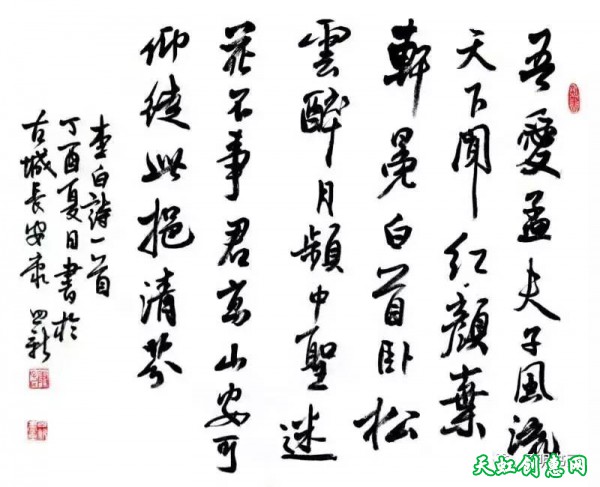 吾愛孟夫子風流
天下聞紅顏棄
軒冕白首卧松
雲醉月頻中聖迷
花不事君高山安可
仰徒此挹清芬
李白詩一首
丁酉夏日書於
古城長安
天虹创意网